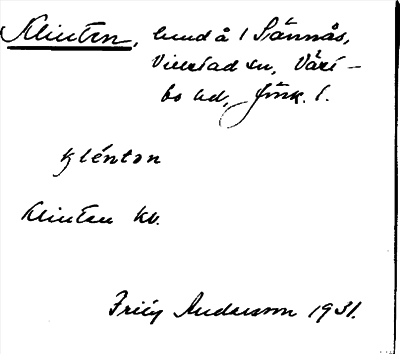 Klinten, lund å 1 Sännås,
Villstad sn, Väst-
bo hd, Jönk. l.
klénton
Klinten kv.
Frity Andersson 1931.